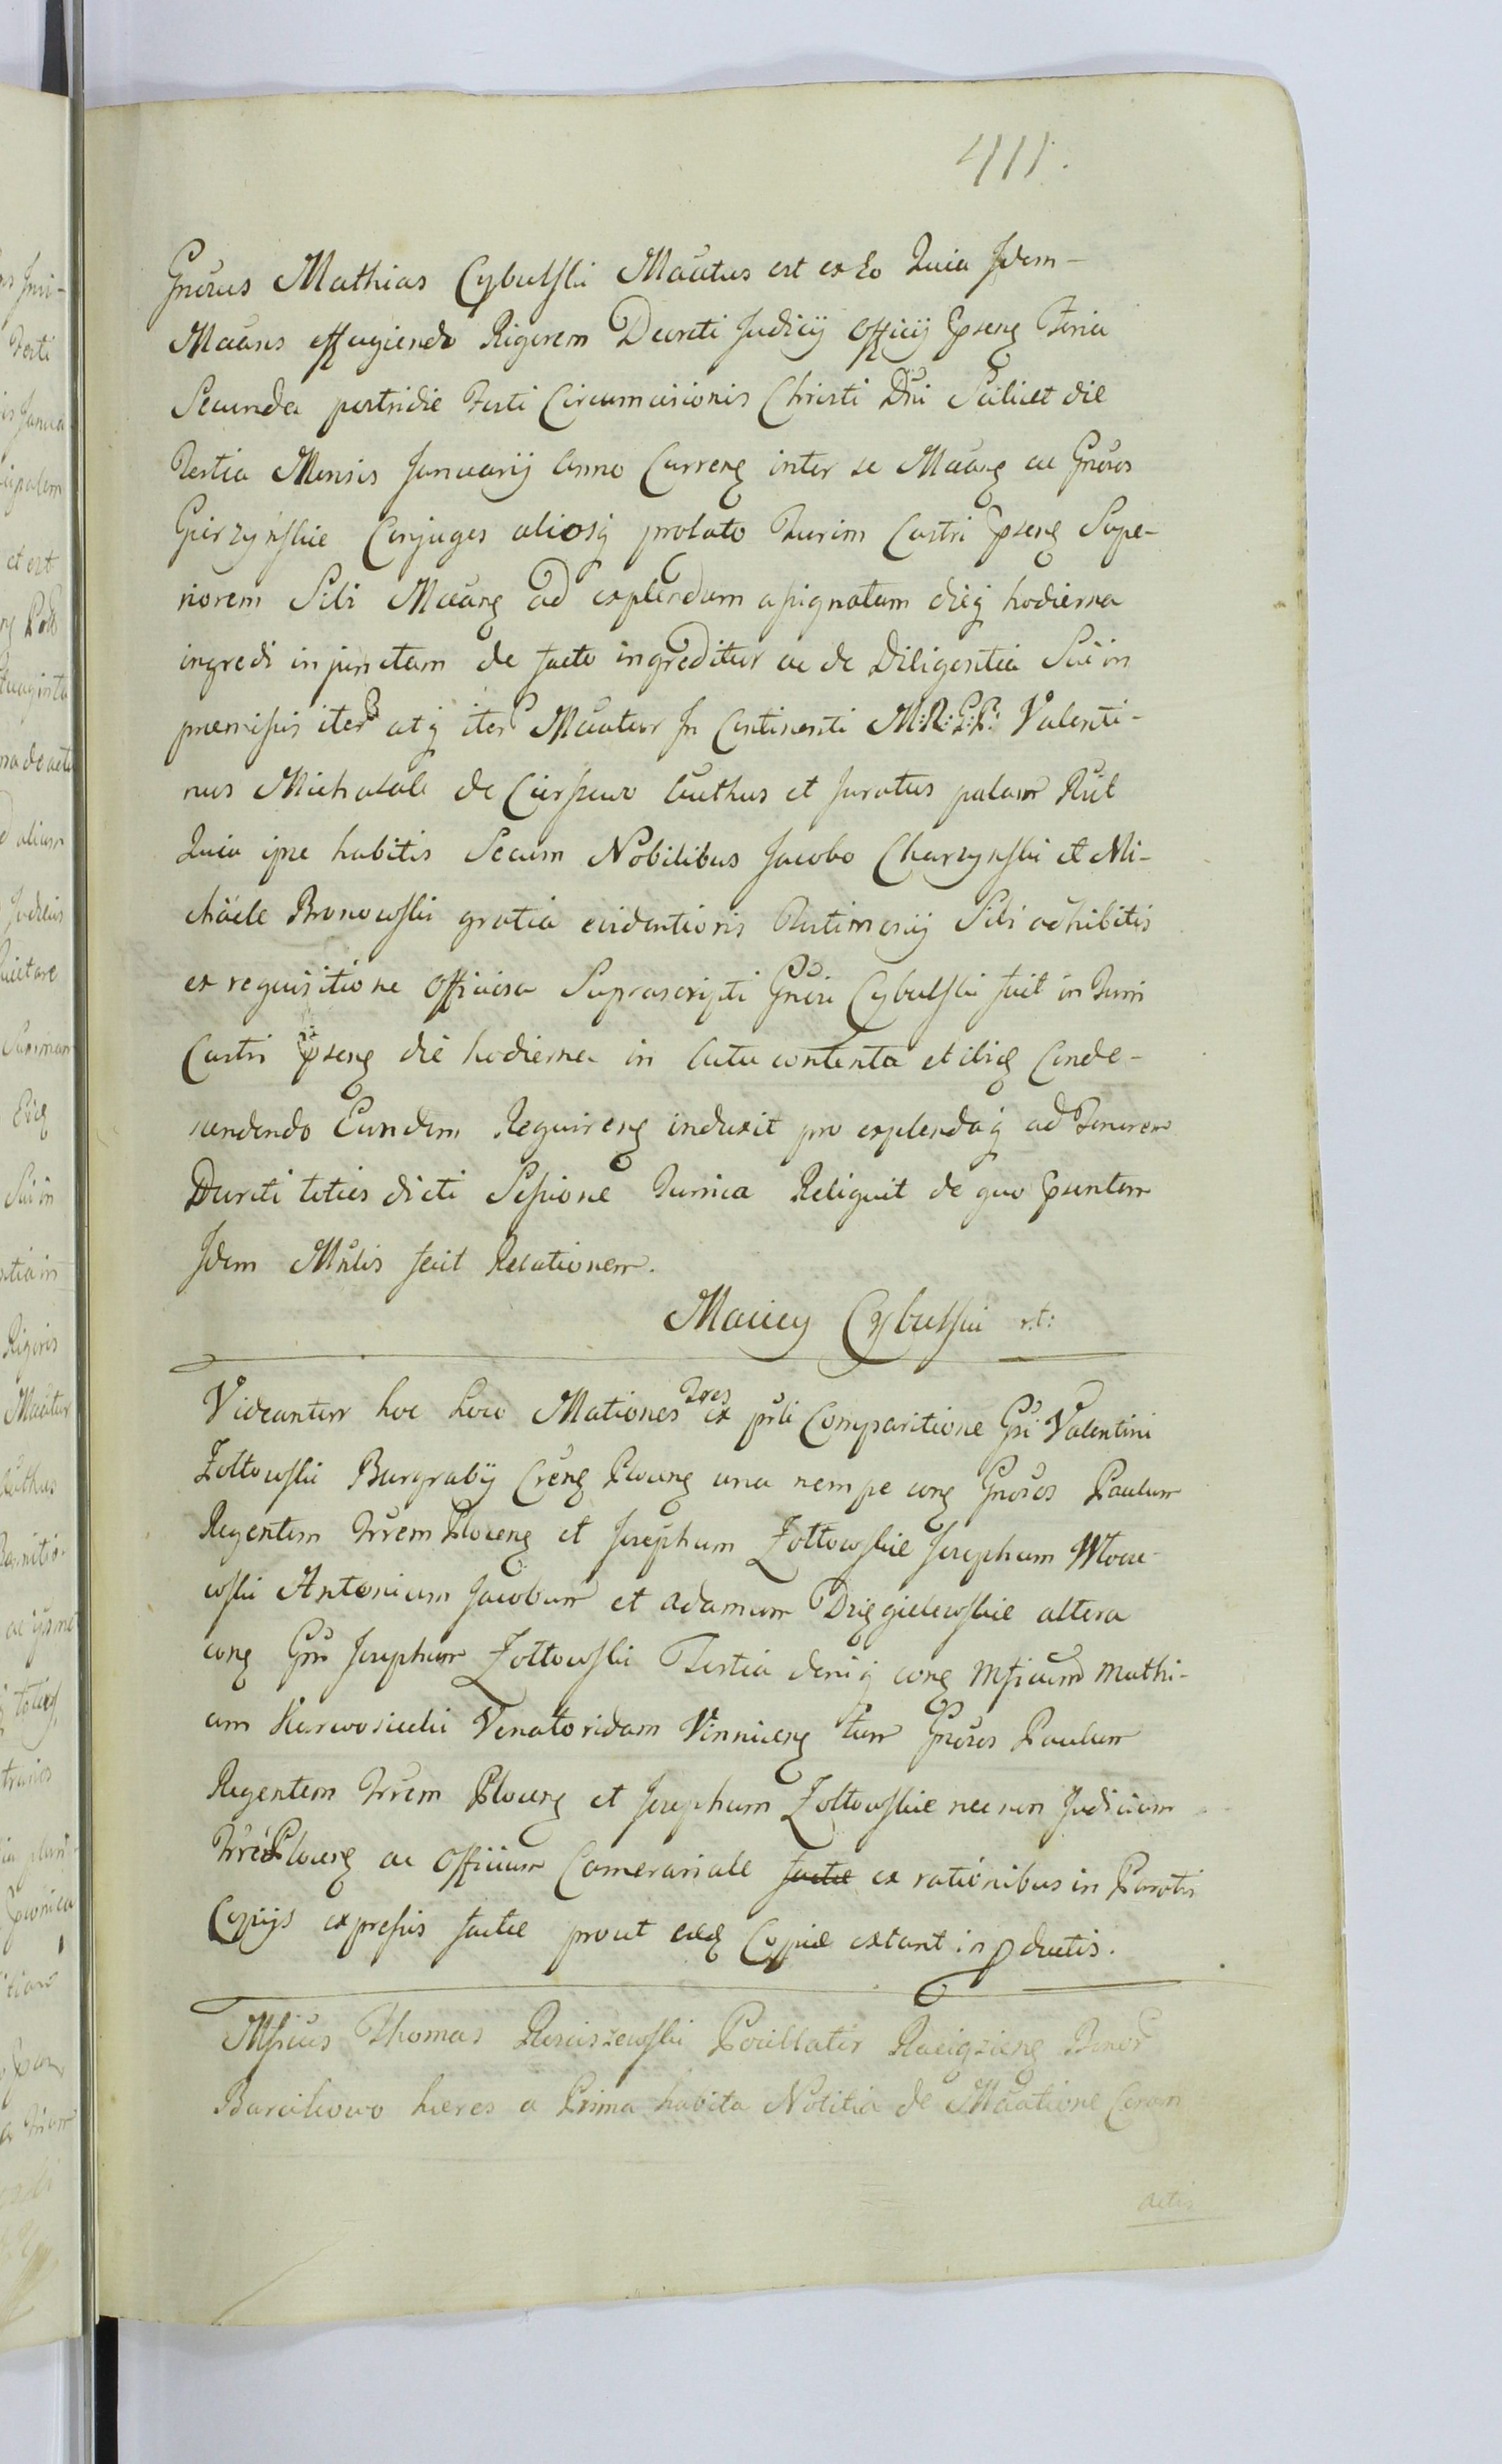 411.
Gnosus Mathias Cybulski Mãtus est ex Eo Quia Idem-
Mãans effugiendo Rigorem Decreti Judicij Officij pseng Feria
Secunda postridie Festi Circumcisionis Christi Dni Scilicet die
Tertia Mensis Januarij Anno Curreng inter se Mãang ac Gnosos
Gierzynskie Conjuges aliosq prolato Turim Castri pseng Supe-
riorem Sibi Mãang ad explendum assignatam dieq hodierna
ingredi injunctam de facto ingreditur ac de Diligentia Sui in
præmissis iter atq iter Mãatur In Continenti M:R:G:P: Valenti-
nus Michalak de Cierszewo Authus et Juratus palam Rlit
Quia ipse habitis Secum Nobilibus Jacobo Charzynski et Mi-
chaele Bronowski gratia evidentioris Testimonij Sibi adhibitis
ex requisitione Officiosa Suprascripti Gnosi Cybulski fuit in Turri
Castri pseng die hodierna in Actu contenta et ibiq Conde-
scendendo Eundem Requireng induxit pro explendaq ad Tenorem
Decreti toties dicti Sessione Turrica Reliquit de quo psentem
Idem Mnlis fecit Relationem.
Maciey Cybulski r.t:
Videantur hoc Loco Mationes Tres ex prli Comparitione Gsi Valentini
Zołtowski Burgrabij Creng Ploceng una nempe cong Gnosos Paulum
Regentem Trrem Ploceng et Josephum Zołtowskie Josephum Mloce-
wski Antonium Jacobum et Adamum Dzięgielewskie altera
cong Gnm Josephum Zołtowski Tertia deniq cong Mficum Mathi-
am Karwosiecki Venatoridam Vinniceng tum Gnosos Paulum
Regentem Trrem Ploceng et Josephum Zołtowskie nec non Judicium
Trre Ploceng ac Officium Camerariale factæ ex rationibus in Paratis
Copijs expressis factæ prout eædē Copiæ extant in pductis.
Mficus Thomas Kosciszewski Pocillator Raciąziens Bonor
Barcikowo hæres a Prima habita Notitia de Mãatione Coram
actis